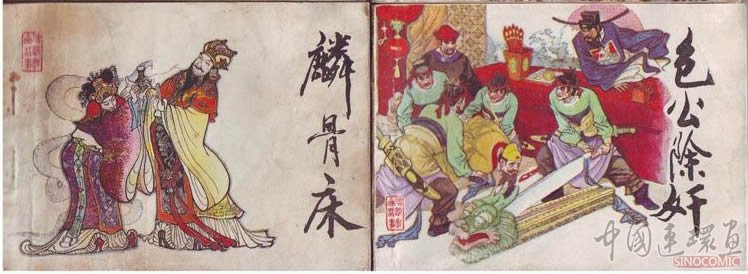 麟骨床
包公除奸
中國連環画
SINOCOMIC